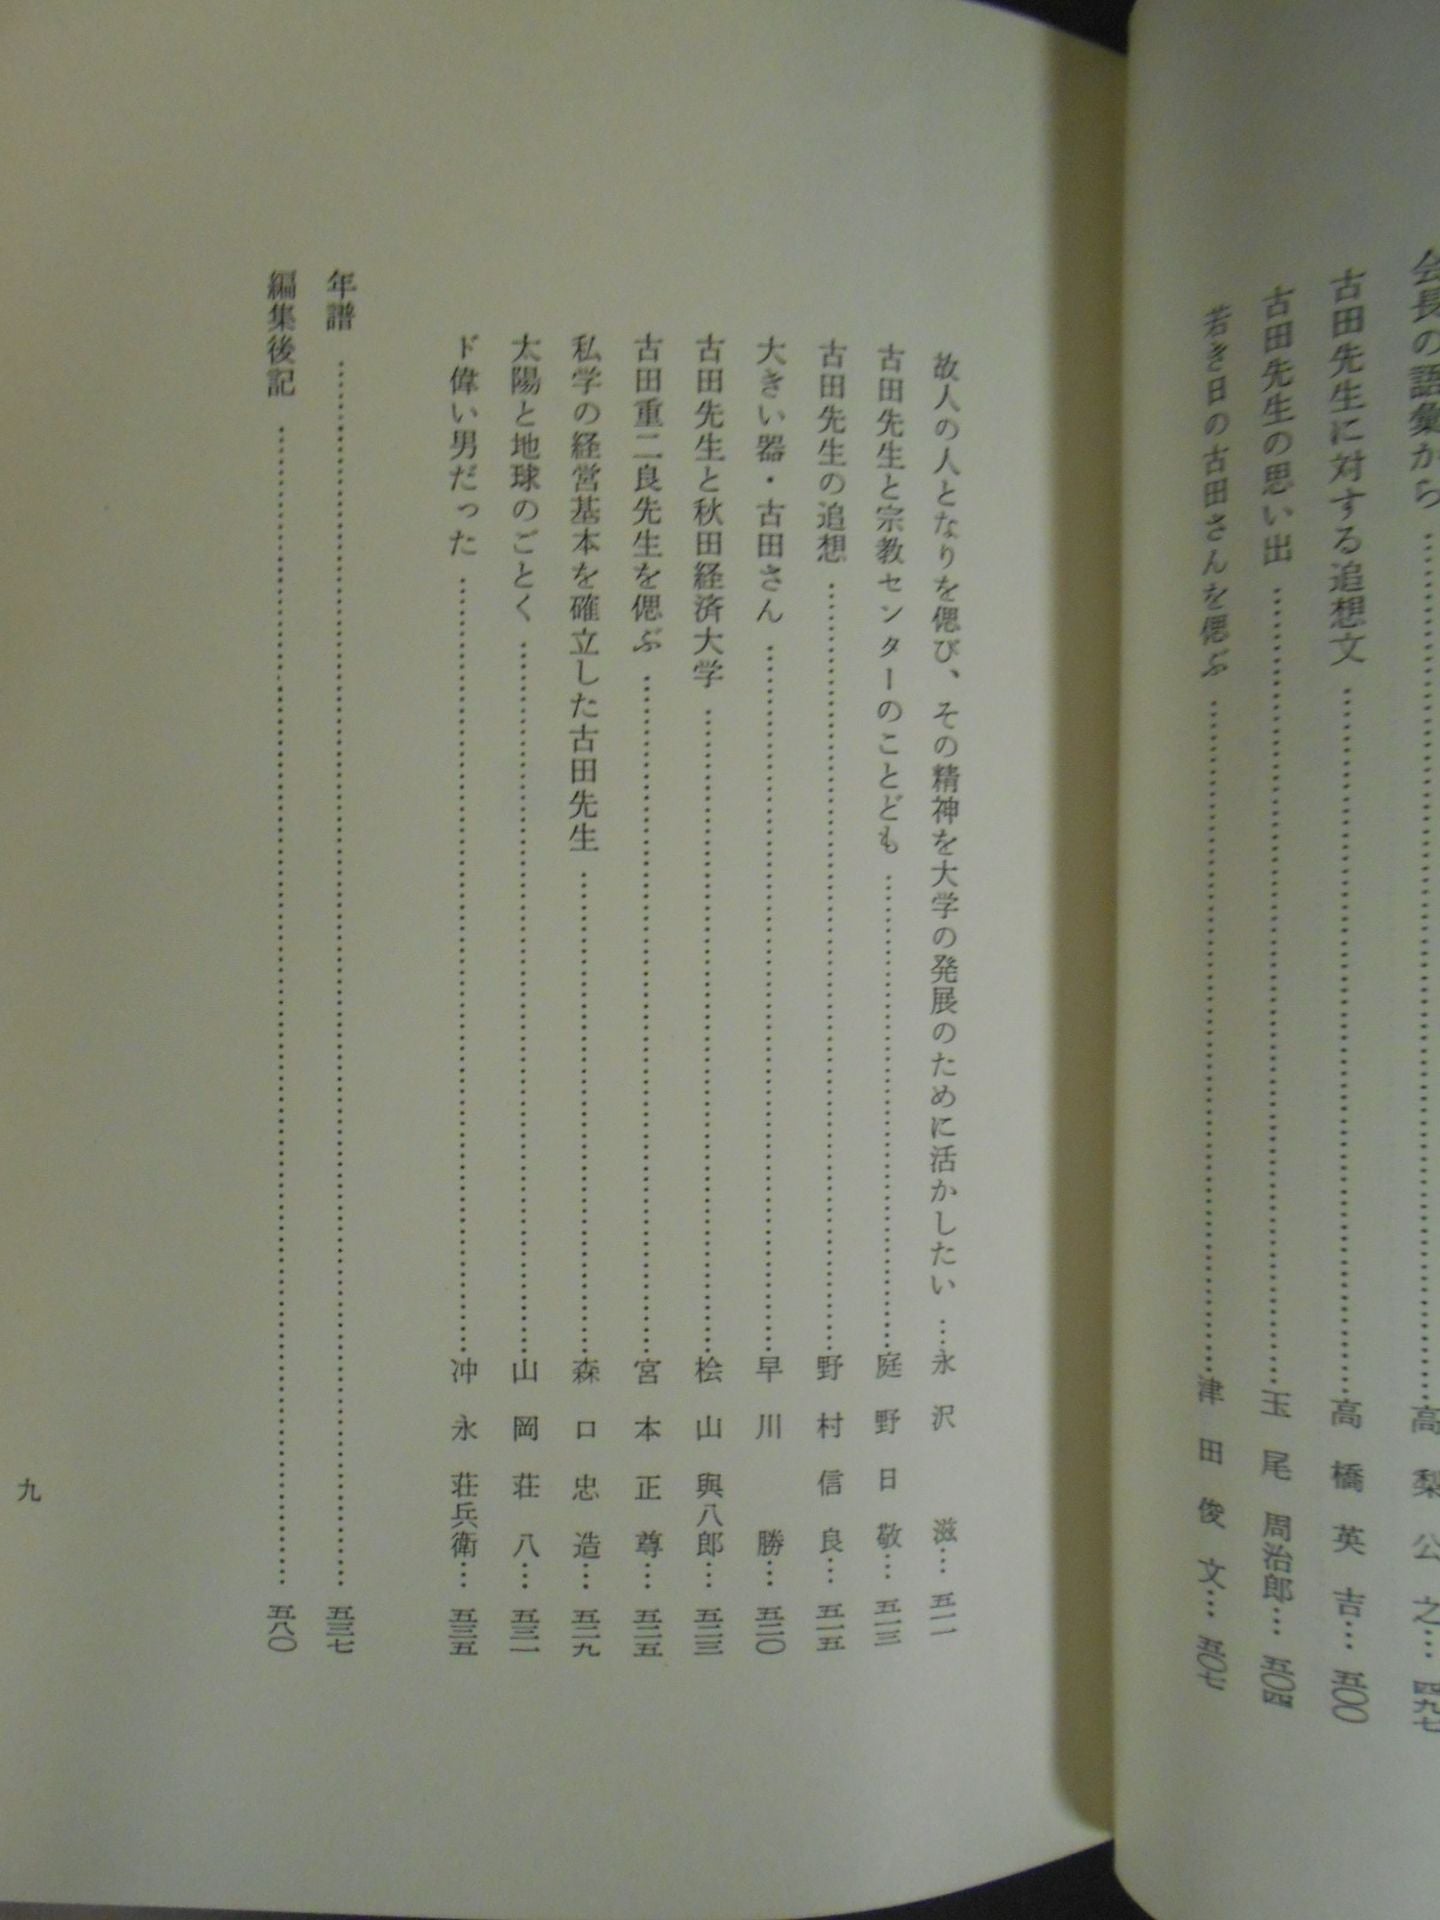 会長の語彙から……高梨公之…四九七
古田先生に対する追想文……高橋英吉…五〇〇
古田先生の思い出……玉尾周治郎…五〇四
若き日の古田さんを偲ぶ……津田俊文…五〇七
故人の人となりを偲び、その精神を大学の発展のために活かしたい…永沢滋…五一一
古田先生と宗教センターのことども……庭野日敬…五一三
古田先生の追想……野村信良…五一五
大きい器・古田さん……早川勝…五二〇
古田先生と秋田経済大学……桧山與八郎…五二三
古田重二良先生を偲ぶ……宮本正尊…五二五
私学の経営基本を確立した古田先生……森口忠造…五二九
太陽と地球のごとく……山岡荘八…五三一
ド偉い男だった……冲永荘兵衛…五三五
年譜……五三七
編集後記……五八〇
九